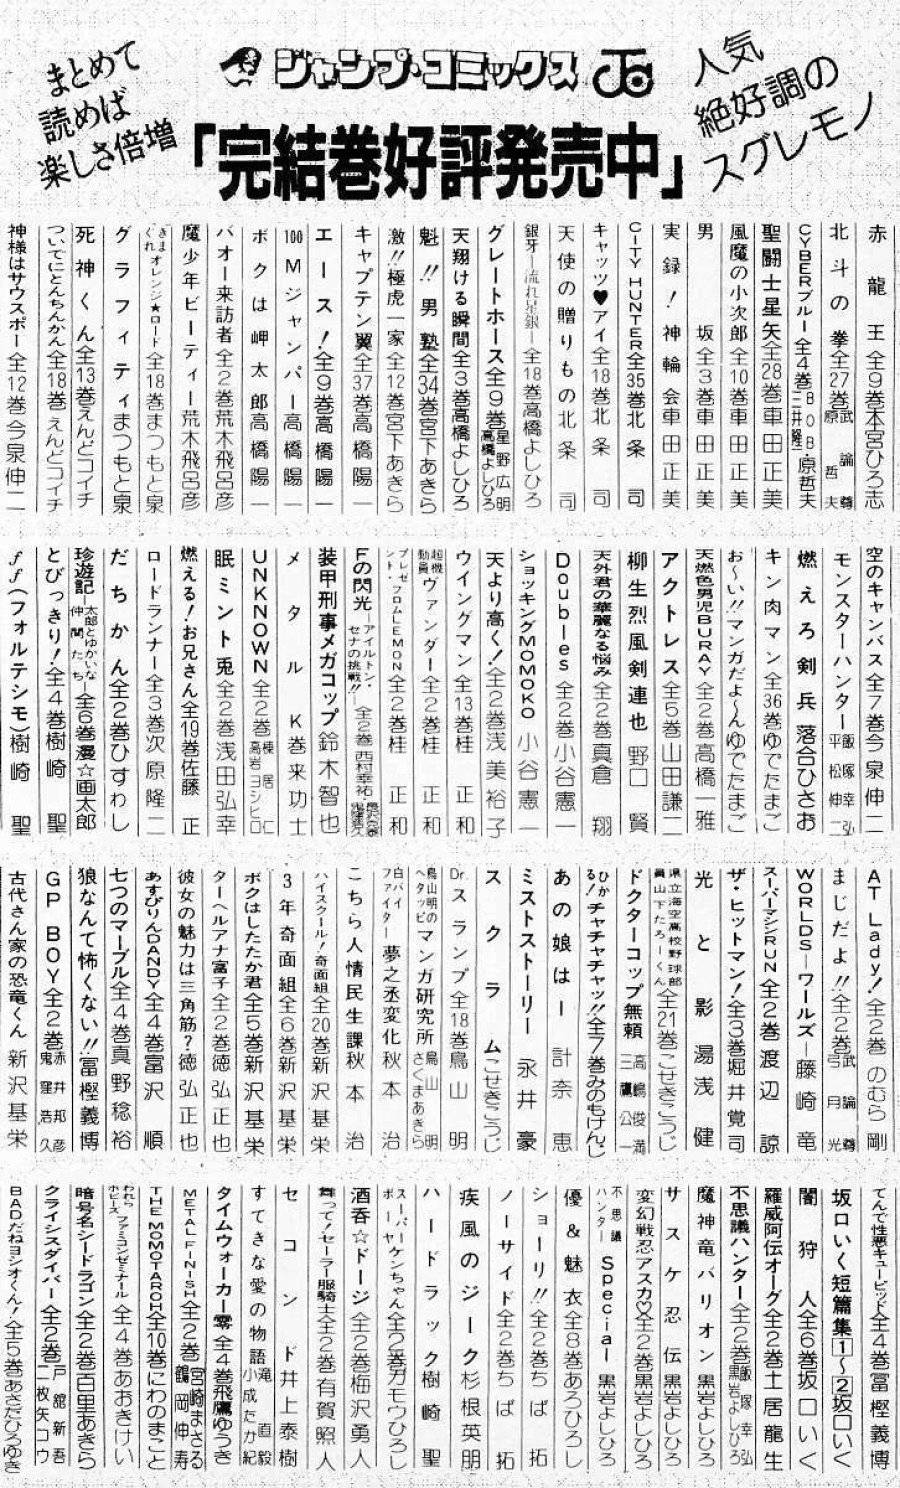 まとめて
読めば
楽しさ倍増
ジャンプ・コミックス
人気
絶好調の
スグレモノ
「完結巻好評発売中」
赤龍王 全9巻 本宮ひろ志
北斗の拳 全27巻 武論尊 原哲夫
CYBERブルー 全4巻 BOB・原哲夫 三井隆一
聖闘士星矢 全28巻 車田正美
風魔の小次郎 全10巻 車田正美
男坂 全3巻 車田正美
実録!神輪会 車田正美
CITY HUNTER 全35巻 北条司
キャッツ♥アイ 全18巻 北条司
天使の贈りもの 北条司
銀牙―流れ星銀― 全18巻 高橋よしひろ
グレートホース 全9巻 星野広明 高橋よしひろ
天翔ける瞬間 全3巻 高橋よしひろ
魁!!男塾 全34巻 宮下あきら
激!!極虎一家 全12巻 宮下あきら
キャプテン翼 全37巻 高橋陽一
エース! 全9巻 高橋陽一
100Mジャンパー 高橋陽一
ボクは岬太郎 高橋陽一
バオー来訪者 全2巻 荒木飛呂彦
魔少年ビーティー 荒木飛呂彦
きまぐれオレンジ★ロード 全18巻 まつもと泉
グラフィティ まつもと泉
死神くん 全13巻 えんどコイチ
ついでにとんちんかん 全18巻 えんどコイチ
神様はサウスポー 全12巻 今泉伸二
空のキャンバス 全7巻 今泉伸二
モンスターハンター 飯塚幸弘 平松伸二
燃えろ剣兵 落合ひさお
キン肉マン 全36巻 ゆでたまご
お〜い!!マンガだよ〜ん ゆでたまご
天燃色男児BURAY 全2巻 高橋一雅
アクトレス 全5巻 山田謙二
柳生烈風剣連也 野口賢
天外君の華麗なる悩み 全2巻 真倉翔
Doubles 全2巻 小谷憲一
ショッキングMOMOKO 小谷憲一
天より高く! 全2巻 浅美裕子
ウイングマン 全13巻 桂正和
超機動員ヴァンダー 全2巻 桂正和
プレゼント・フロムLEMON 全2巻 桂正和
Fの閃光―アイルトン・セナの挑戦!!― 全2巻 西村幸祐
装甲刑事メガコップ 鈴木智也
メタルK 巻来功士
UNKNOWN 全2巻 棟居仁 高岩ヨシヒロ
眠ミント兎 全2巻 浅田弘幸
燃える!お兄さん 全19巻 佐藤正
ロードランナー 全3巻 次原隆二
だちかん 全2巻 ひすわし
珍遊記―太郎とゆかいな仲間たち― 全6巻 漫☆画太郎
とびっきり! 全4巻 樹崎聖
ff(フォルテシモ) 樹崎聖
AT Lady! 全2巻 のむら剛
まじだよ!! 全2巻 武論尊 弓月光
WORLDS―ワールズ― 藤崎竜
スーパーマシンRUN 全2巻 渡辺諒
ザ・ヒットマン! 全3巻 堀井覚司
光と影 湯浅健
県立海空高校野球部員山下たろーくん 全21巻 こせきこうじ
ドクターコップ無頼 高嶋俊満 三鷹公一
ひかる!チャチャチャッ!! 全7巻 みのもけんじ
あの娘はー 計奈恵
ミストストーリー 永井豪
スクラム こせきこうじ
Dr.スランプ 全18巻 鳥山明
鳥山明のヘタッピマンガ研究所 鳥山明 さくまあきら
白バイファイター夢之丞変化 秋本治
こちら人情民生課 秋本治
ハイスクール!奇面組 全20巻 新沢基栄
3年奇面組 全6巻 新沢基栄
ボクはしたたか君 全5巻 新沢基栄
ターヘルアナ富子 全2巻 徳弘正也
彼女の魅力は三角筋? 徳弘正也
あすぴりんDANDY 全4巻 富沢順
七つのマーブル 全4巻 真野稔裕
狼なんて怖くない!! 冨樫義博
GP BOY 全2巻 赤井邦彦 鬼窪浩久
古代さん家の恐竜くん 新沢基栄
てんで性悪キューピッド 全4巻 冨樫義博
坂口いく短篇集[1]〜[2] 坂口いく
闇狩人 全6巻 坂口いく
羅威阿伝オーグ 全2巻 土居龍生
不思議ハンター 全2巻 飯塚幸弘 黒岩よしひろ
魔神竜バリオン 黒岩よしひろ
サスケ忍伝 黒岩よしひろ
変幻戦忍アスカ♡ 全2巻 黒岩よしひろ
不思議ハンターSpecial 黒岩よしひろ
優&魅衣 全8巻 あろひろし
ショーリ!! 全2巻 ちば拓
ノーサイド 全2巻 ちば拓
疾風のジーク 杉根英朋
ハードラック 樹崎聖
スーパーボーヤーケンちゃん 全2巻 ガモウひろし
酒呑☆ドージ 全2巻 梅沢勇人
舞って!セーラー服騎士 全2巻 有賀照人
セコンド 井上泰樹
すてきな愛の物語 滝直毅 小成たか紀
タイムウォーカー零 全4巻 飛鷹ゆうき
METAL FINISH 全2巻 宮崎まさる 鶴岡伸寿
THE MOMOTAROH 全10巻 にわのまこと
われらホビーズファミコンゼミナール 全4巻 あおきけい
暗号名シードラゴン 全2巻 百里あきら
クライシスダイバー 全2巻 戸舘新吾 二枚矢コウ
BADだねヨシオくん! 全5巻 あさだひろゆき